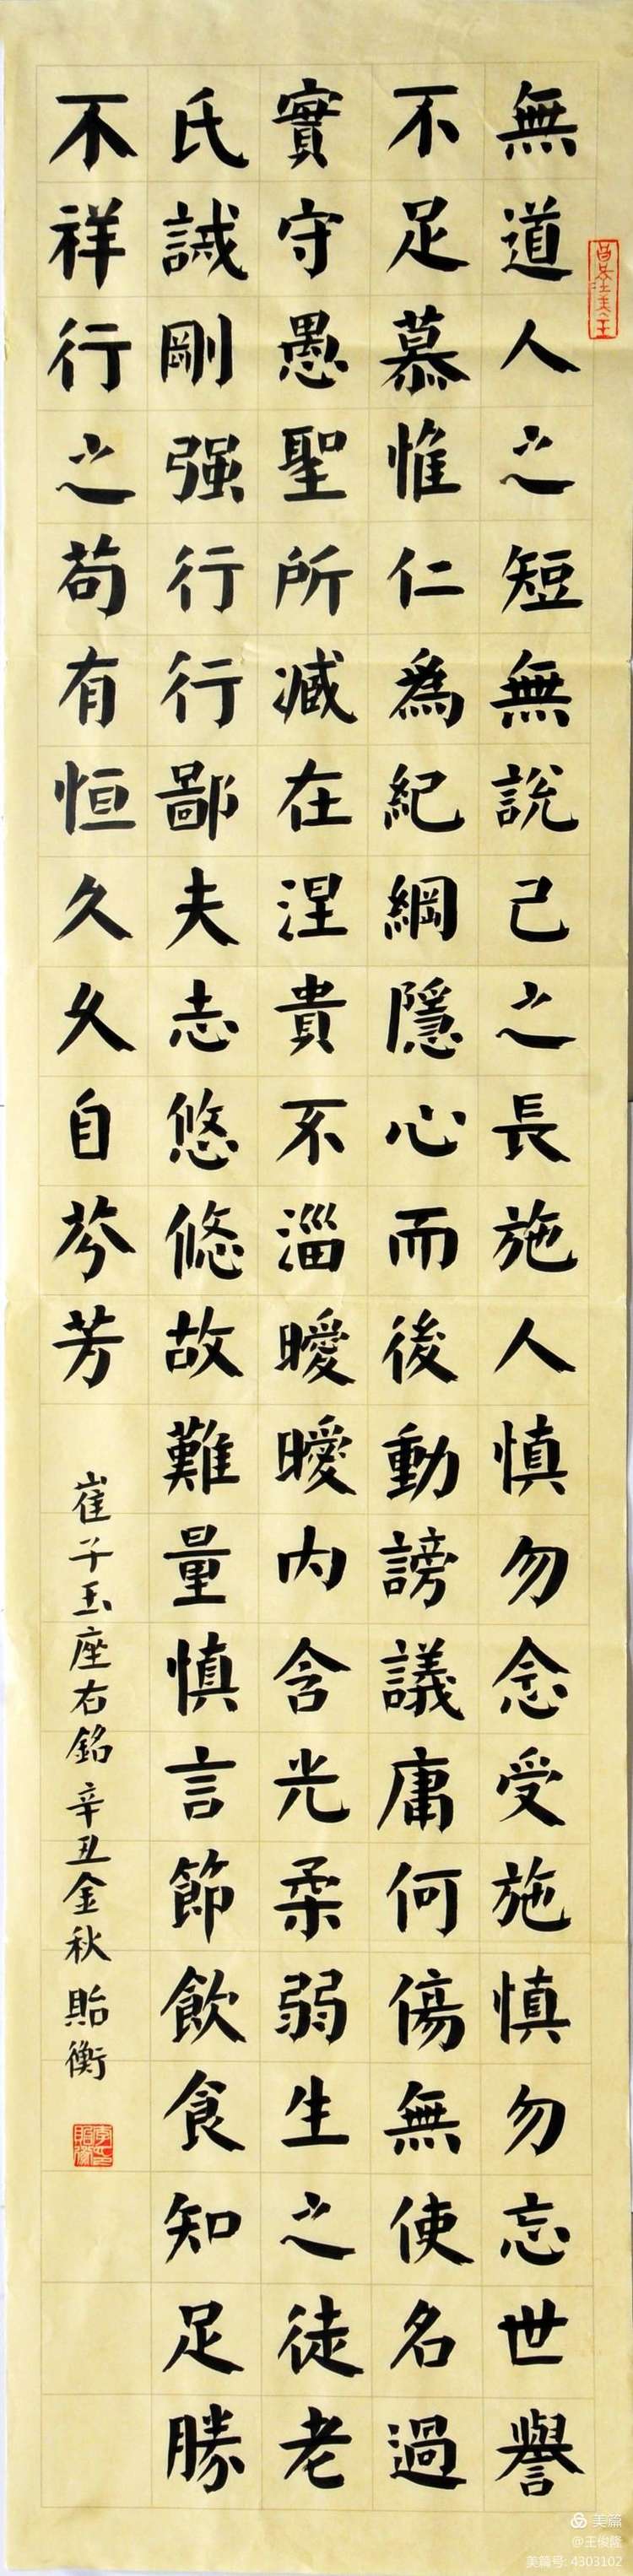 無道人之短無說己之長施人慎勿念受施慎勿忘世譽
不足慕惟仁為紀綱隱心而後動謗議庸何傷無使名過
實守愚聖所臧在涅貴不淄曖曖內含光柔弱生之徒老
氏誡剛强行行鄙夫志悠悠故難量慎言節飲食知足勝
不祥行之苟有恒久久自芬芳
崔子玉座右銘 辛丑金秋 貽衡
美篇
@王俊隆
美篇号: 4303102